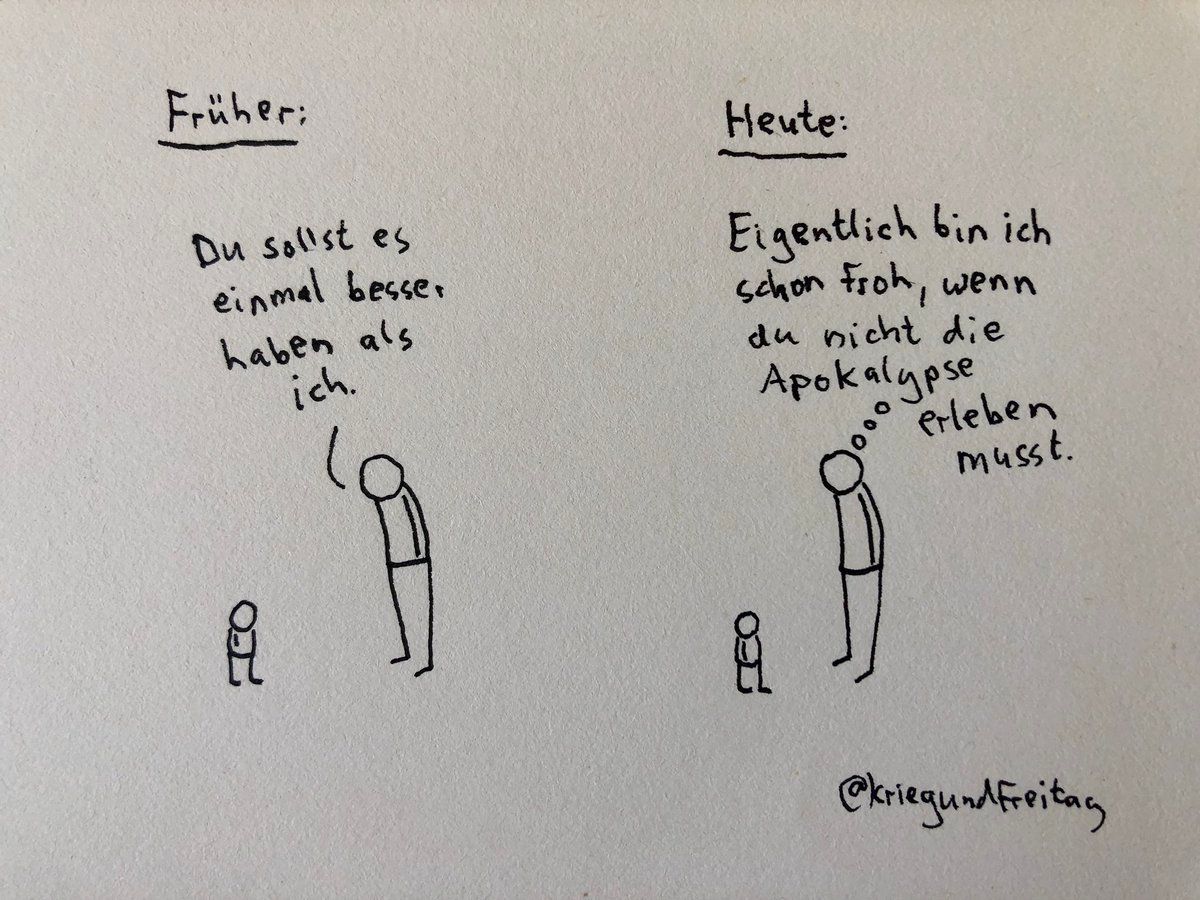 Früher:
Du sollst es
einmal besser
haben als
ich.
Heute:
Eigentlich bin ich
schon froh, wenn
du nicht die
Apokalypse
erleben
musst.
@kriegundfreitag